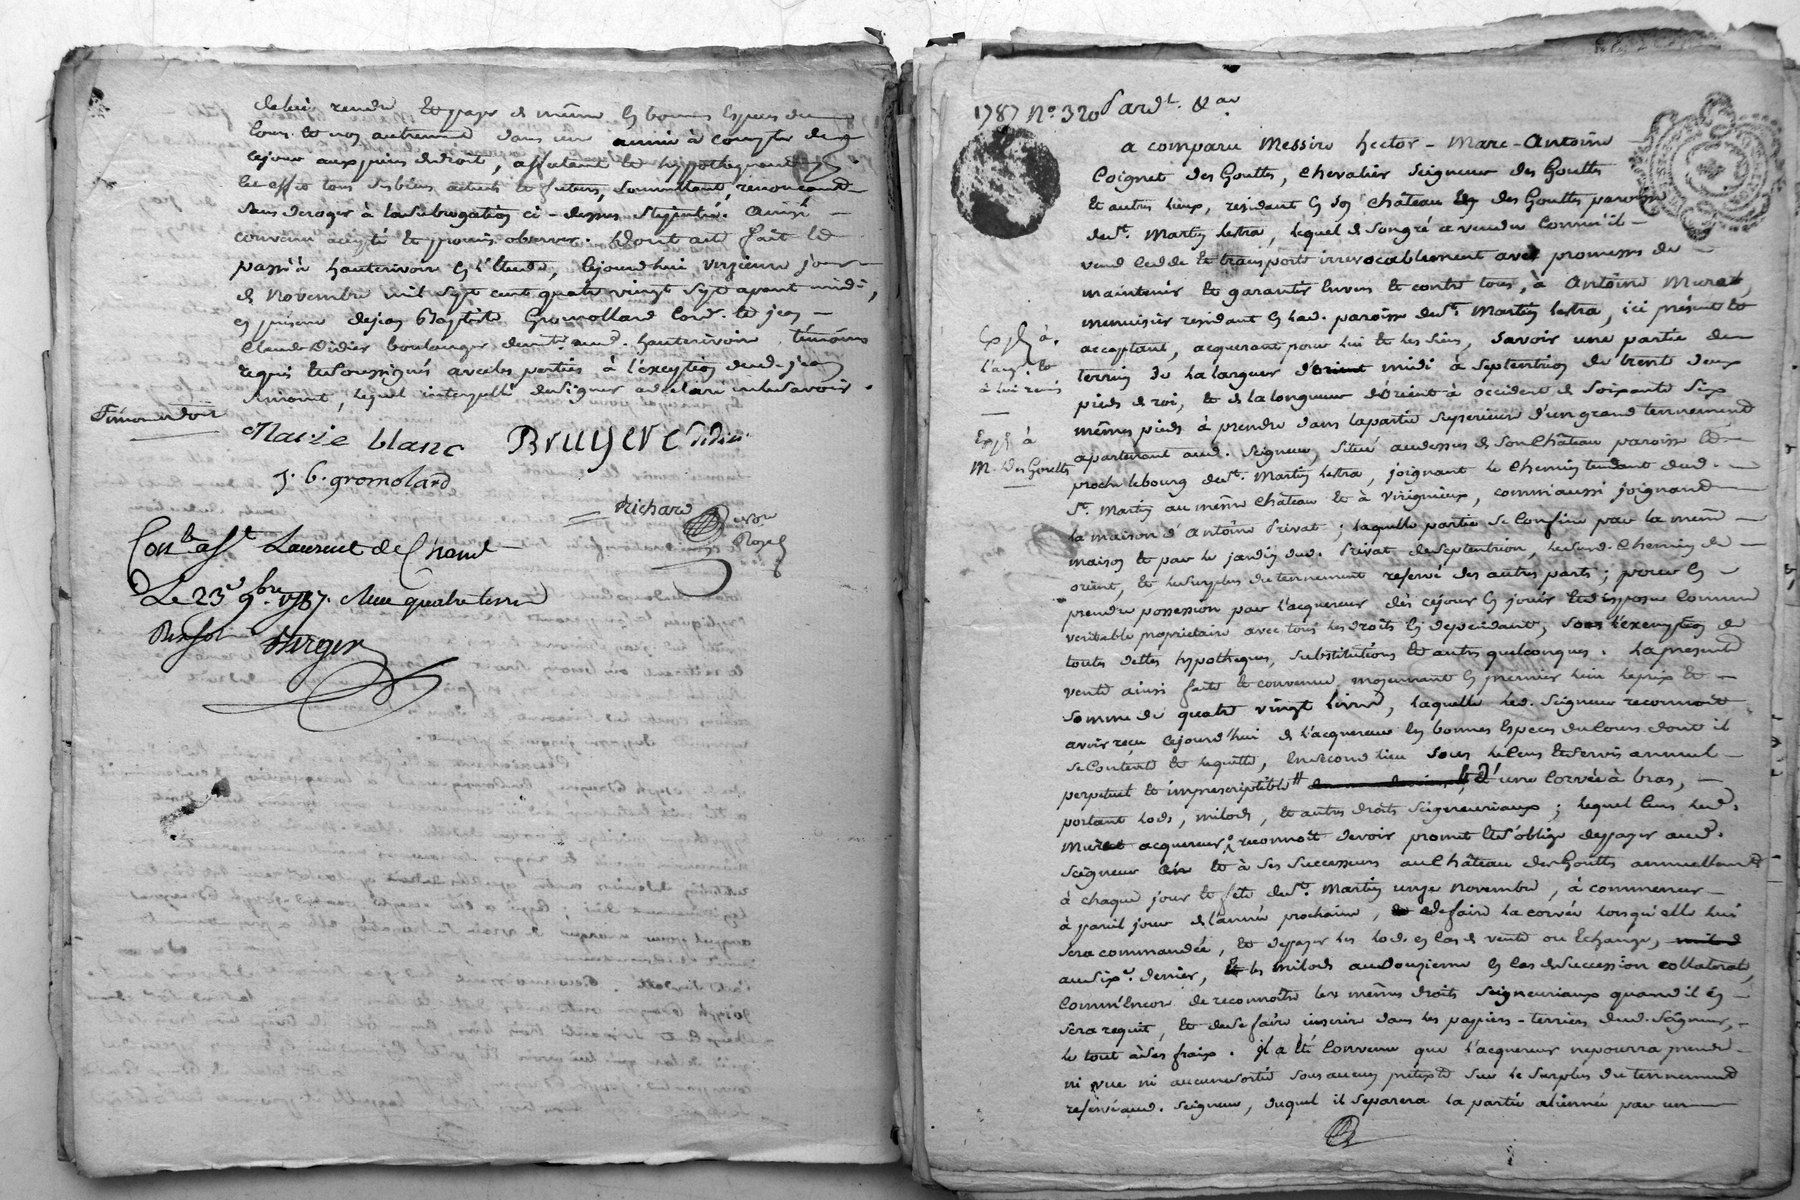 de lui rendre et payer de même en bonnes especes du
cours et non autrement dans un année à compter de
cejour aux peines de droit, affectant et hypothequant
tous ses biens actuels et futurs, soumettant, renonceant
sans deroger à la subrogation ci-dessus stipulée. ainsi
convenu accepté et promis observer. Dont acte fait et
passé à hauterivoire en l'etude, cejourdhui onzieme jour
de novembre mil sept cent quatre vingt sept avant midi,
en presence de jean Baptiste Gromollard Cord. et jean
Claude Didier boulanger dud. hauterivoire témoins
requis et soussignés avec les parties à l'exception dud. jean
Simont, lequel interpellé de signer a declaré ne le savoir.
Marie blanc Bruyere Didier
J. b. gromolard
Richard
Con.lé à St Laurent de Chamt
Le 23e 9bre 1787. Reçu quatre livres
1787 N.o 320 Pardt. &ar
a comparu Messire hector-Marc-Antoine
Coignet des Gouttes, Chevalier Seigneur des Gouttes
et autres lieux, residant en son château des Gouttes paroisse
de St. Martin Lestra, lequel de son gré a vendu comme il
vend cede et transporte irrevocablement avec promesses de
maintenir et garantir envers et contre tous, à Antoine Murat,
menuisier residant en lad. paroisse de St. Martin Lestra, ici présent et
acceptant, acquerant pour lui et les siens, savoir une partie de
terrein de la largeur de midi à septentrion de trente deux
pieds de roi, et de la longueur d'orient à occident de soixante six
mêmes pieds à prendre dans la partie superieure d'un grand tennement
apartenant aud. Seigneur, situé audessus de son Château paroisse et
proche le bourg de St. Martin Lestra, joignant le Chemin tendant dud.
St. Martin au même Château et à Virignieux, comm'aussi joignant
la maison d'Antoine Privat; laquelle partie se confine par la même
maison et par le jardin dud. Privat de septentrion, led. Chemin de
orient, et le surplus du tennement reservé des autres parts; pour en
prendre possession par l'acquereur dès cejour en jouir et disposer comme
veritable proprietaire avec tous les droits en dependant, sous l'exemption de
toutes dettes hypotheques, substitutions et autres quelconques. La presente
vente ainsi faite et convenue, moyennant en premier lieu le prix et
somme de quatre vingt livres, laquelle led. Seigneur reconnoit
avoir reçu cejourd'hui de l'acquereur en bonnes especes du cours dont il
se contente et le quitte, en second lieu sous le cens et servis annuel
perpetuel et imprescriptible et d'une corvée à bras,
portant lods, milods, et autres droits seigneuriaux; lequel cens led.
Murat acquereur reconnoît devoir promet et s'oblige de payer aud.
Seigneur et à ses successeurs au Château des Gouttes annuellement
à chaque jour et fête de St. Martin onze novembre, à commencer
à pareil jour de l'année prochaine, de faire la corvée lorsqu'elle lui
sera commandée, et de payer les lods en cas de vente ou echange,
au six.e denier, et les milods au douzieme en cas de succession collaterale,
comm'encor de reconnoître les mêmes droits seigneuriaux quand il en
sera requit, et de se faire inscrire dans les papiers-terriers dud. Seigneur,
le tout à ses fraix. Il a été convenu que l'acquereur ne pourra prendre
ni vue ni aucune sortie sous aucun prétexte sur le surplus du tennement
reservé aud. Seigneur, duquel il separera la partie alienée par un
Exp. à
l'acq. et
à lui remis
Exp. à
M. Des Gouttes